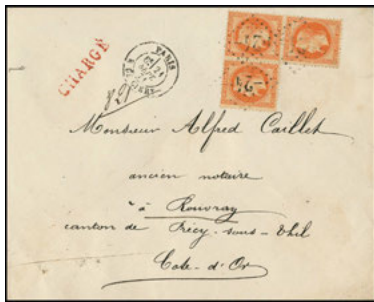 CHARGÉ
PARIS
24
24
Monsieur Alfred Caillet
ancien notaire
à Rouvray
canton de Précy-sous-Thil
Côte-d'Or